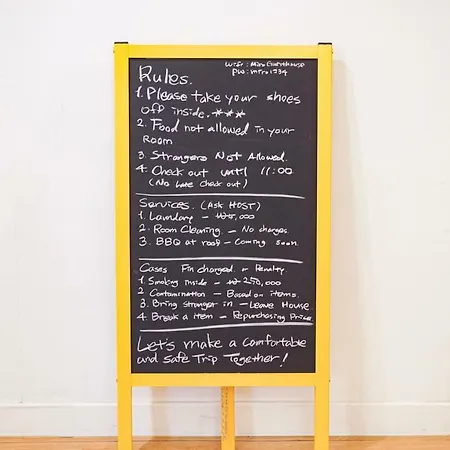 Wifi : Miro Guesthouse
PW : miro1234
Rules.
1. Please take your shoes
off inside. ***
2. Food not allowed in your
Room
3. Strangers Not Allowed.
4. Check out until 11:00
(No Late Check out)
Services. (Ask HOST)
1. Laundary - ₩5,000
2. Room Cleaning - No charges.
3. BBQ at roof - Coming soon.
Cases Fin charged. or Penalty.
1. Smoking inside - ₩250,000
2. Contamination - Based on items.
3. Bring stranger in - Leave House
4. Break a item - Repurchasing Price.
Let's make a comfortable
and safe Trip Together!